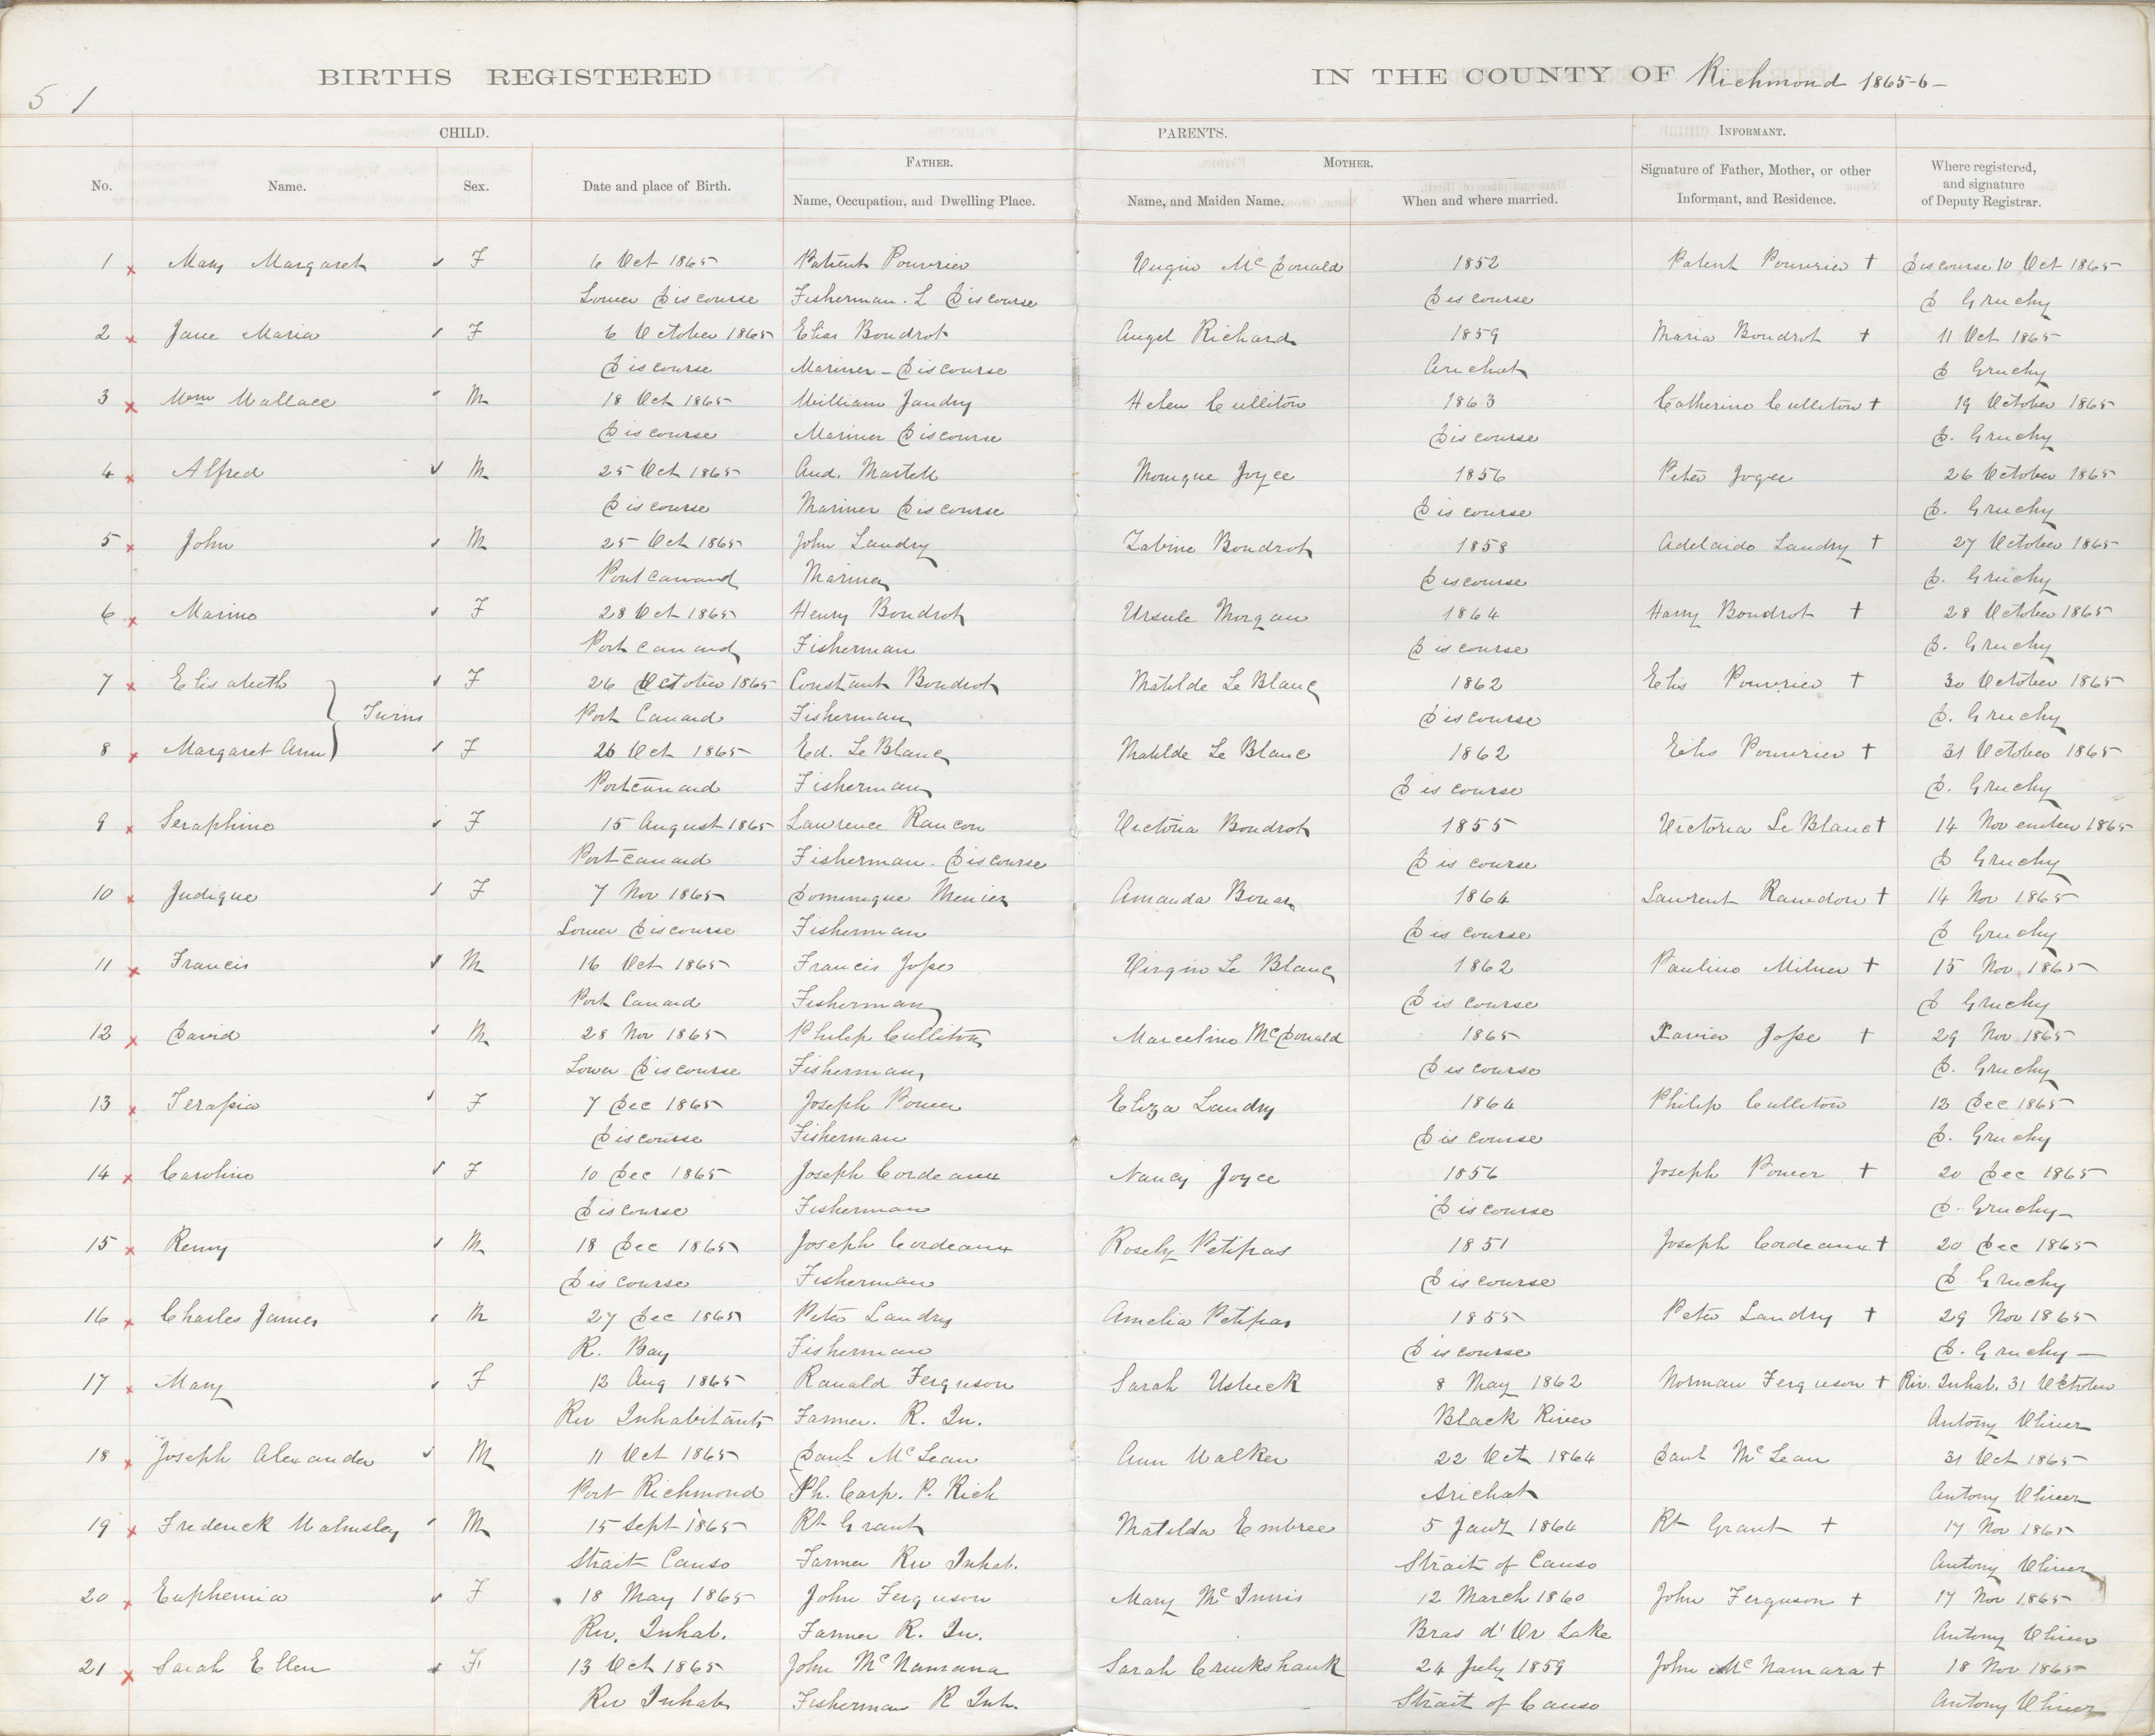 5 1
BIRTHS REGISTERED IN THE COUNTY OF Richmond 1865-6-
CHILD. PARENTS. INFORMANT.
FATHER. MOTHER.
No. Name. Sex. Date and place of Birth. Name, Occupation, and Dwelling Place. Name, and Maiden Name. When and where married. Signature of Father, Mother, or other Informant, and Residence. Where registered, and signature of Deputy Registrar.
1 x Mary Margaret ✓ F 6 Oct 1865 Patient Pouvrier Virgin McDonald 1852 Patient Pouvrier + Discourse 10 Oct 1865
Lower Discourse Fisherman. L Discourse Discourse D Gruchy
2 x Jane Maria ✓ F 6 October 1865 Elias Boudrot Angel Richard 1859 Maria Boudrot + 11 Oct 1865
Discourse Mariner - Discourse Arichat D Gruchy
3 x Wm Wallace M 18 Oct 1865 William Jandry Helen Culliton 1863 Catherine Culliton + 19 October 1865
Discourse Mariner Discourse Discourse D. Gruchy
4 x Alfred ✓ M 25 Oct 1865 And. Martell Monique Joyce 1856 Peter Joyce 26 October 1865
Discourse Mariner Discourse Discourse D. Gruchy
5 x John ✓ M 25 Oct 1865 John Landry Zabine Boudrot 1858 Adelaide Landry + 27 October 1865
Port Canard Mariner Discourse D. Gruchy
6 x Marine ✓ F 28 Oct 1865 Henry Boudrot Ursule Morgan 1864 Harry Boudrot + 28 October 1865
Port Canard Fisherman Discourse D. Gruchy
7 x Elisabeth ✓ F 26 October 1865 Constant Boudrot Matilde Le Blanc 1862 Elis Pouvrier + 30 October 1865
Twins Port Canard Fisherman Discourse D. Gruchy
8 x Margaret Ann ✓ F 26 Oct 1865 Ed. Le Blanc Matilde Le Blanc 1862 Elis Pouvrier + 31 October 1865
Port canard Fisherman Discourse D. Gruchy
9 x Seraphine ✓ F 15 August 1865 Lawrence Rancon Victoria Boudrot 1855 Victoria Le Blanc + 14 November 1865
Port canard Fisherman. Discourse Discourse D Gruchy
10 x Judique ✓ F 7 Nov 1865 Dominique Menier Amanda Bonar 1864 Laurent Ramdon + 14 Nov 1865
Lower Discourse Fisherman Discourse D Gruchy
11 x Francis ✓ M 16 Oct 1865 Francis Josse Virgin Le Blanc 1862 Pauline Milner + 15 Nov 1865
Port Canard Fisherman Discourse D Gruchy
12 x David ✓ M 28 Nov 1865 Philip Culliton Marceline McDonald 1865 Xavier Josse + 29 Nov 1865
Lower Discourse Fisherman Discourse D. Gruchy
13 x Terasia ✓ F 7 Dec 1865 Joseph Power Eliza Landry 1864 Philip Culliton 12 Dec 1865
Discourse Fisherman Discourse D. Gruchy
14 x Caroline ✓ F 10 Dec 1865 Joseph Cordeaux Nancy Joyce 1856 Joseph Power + 20 Dec 1865
Discourse Fisherman Discourse D. Gruchy-
15 x Remy ✓ M 18 Dec 1865 Joseph Cordeaux Rosely Petipas 1851 Joseph Cordeaux + 20 Dec 1865
Discourse Fisherman Discourse D Gruchy
16 x Charles James M 27 Dec 1865 Peter Landry Amelia Petipas 1855 Peter Landry + 29 Nov 1865
R. Bay Fisherman Discourse D. Gruchy -
17 x Mary F 12 Aug 1865 Ranald Ferguson Sarah Usheck 8 May 1862 Norman Ferguson + Riv. Inhab. 31 October
Riv Inhabitants Farmer. R. In. Black River Antony Oliver
18 x Joseph Alexander ✓ M 11 Oct 1865 Danl McLean Ann Walker 22 Oct 1864 Danl McLean 31 Oct 1865
Port Richmond Sh. Carp. P. Rich Arichat Antony Oliver
19 x Frederick Walmsley M 15 Sept 1865 Rt Grant Matilda Embree 5 Jany 1864 Rt Grant + 17 Nov 1865
Strait Canso Farmer Riv Inhab. Strait of Canso Antony Oliver
20 x Euphemia ✓ F 18 May 1865 John Ferguson Mary McInnis 12 March 1860 John Ferguson + 17 Nov 1865
Riv. Inhab. Farmer R. In. Bras d'Or Lake Antony Oliver
21 x Sarah Ellen ✓ F 13 Oct 1865 John McNamara Sarah Cruikshank 24 July 1859 John McNamara + 18 Nov 1865
Riv Inhab Fisherman R Inh. Strait of Canso Antony Oliver